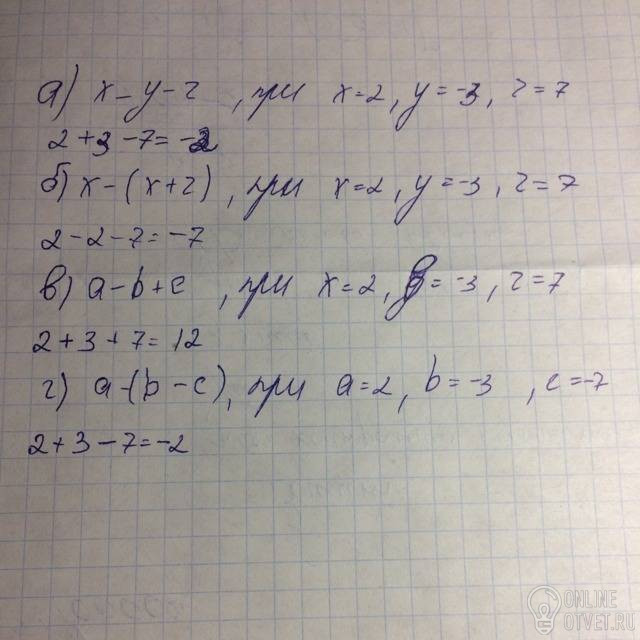 а) x-y-z , при x=2, y=-3, z=7
2+3-7=-2
б) x-(x+z), при x=2, y=-3, z=7
2-2-7=-7
в) a-b+c , при x=2, y=-3, z=7
2+3+7=12
г) a-(b-c), при a=2, b=-3 , c=-7
2+3-7=-2
ONLINE
OTVET.RU